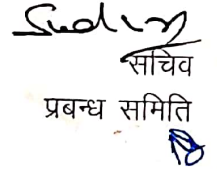 सचिव
प्रबन्ध समिति